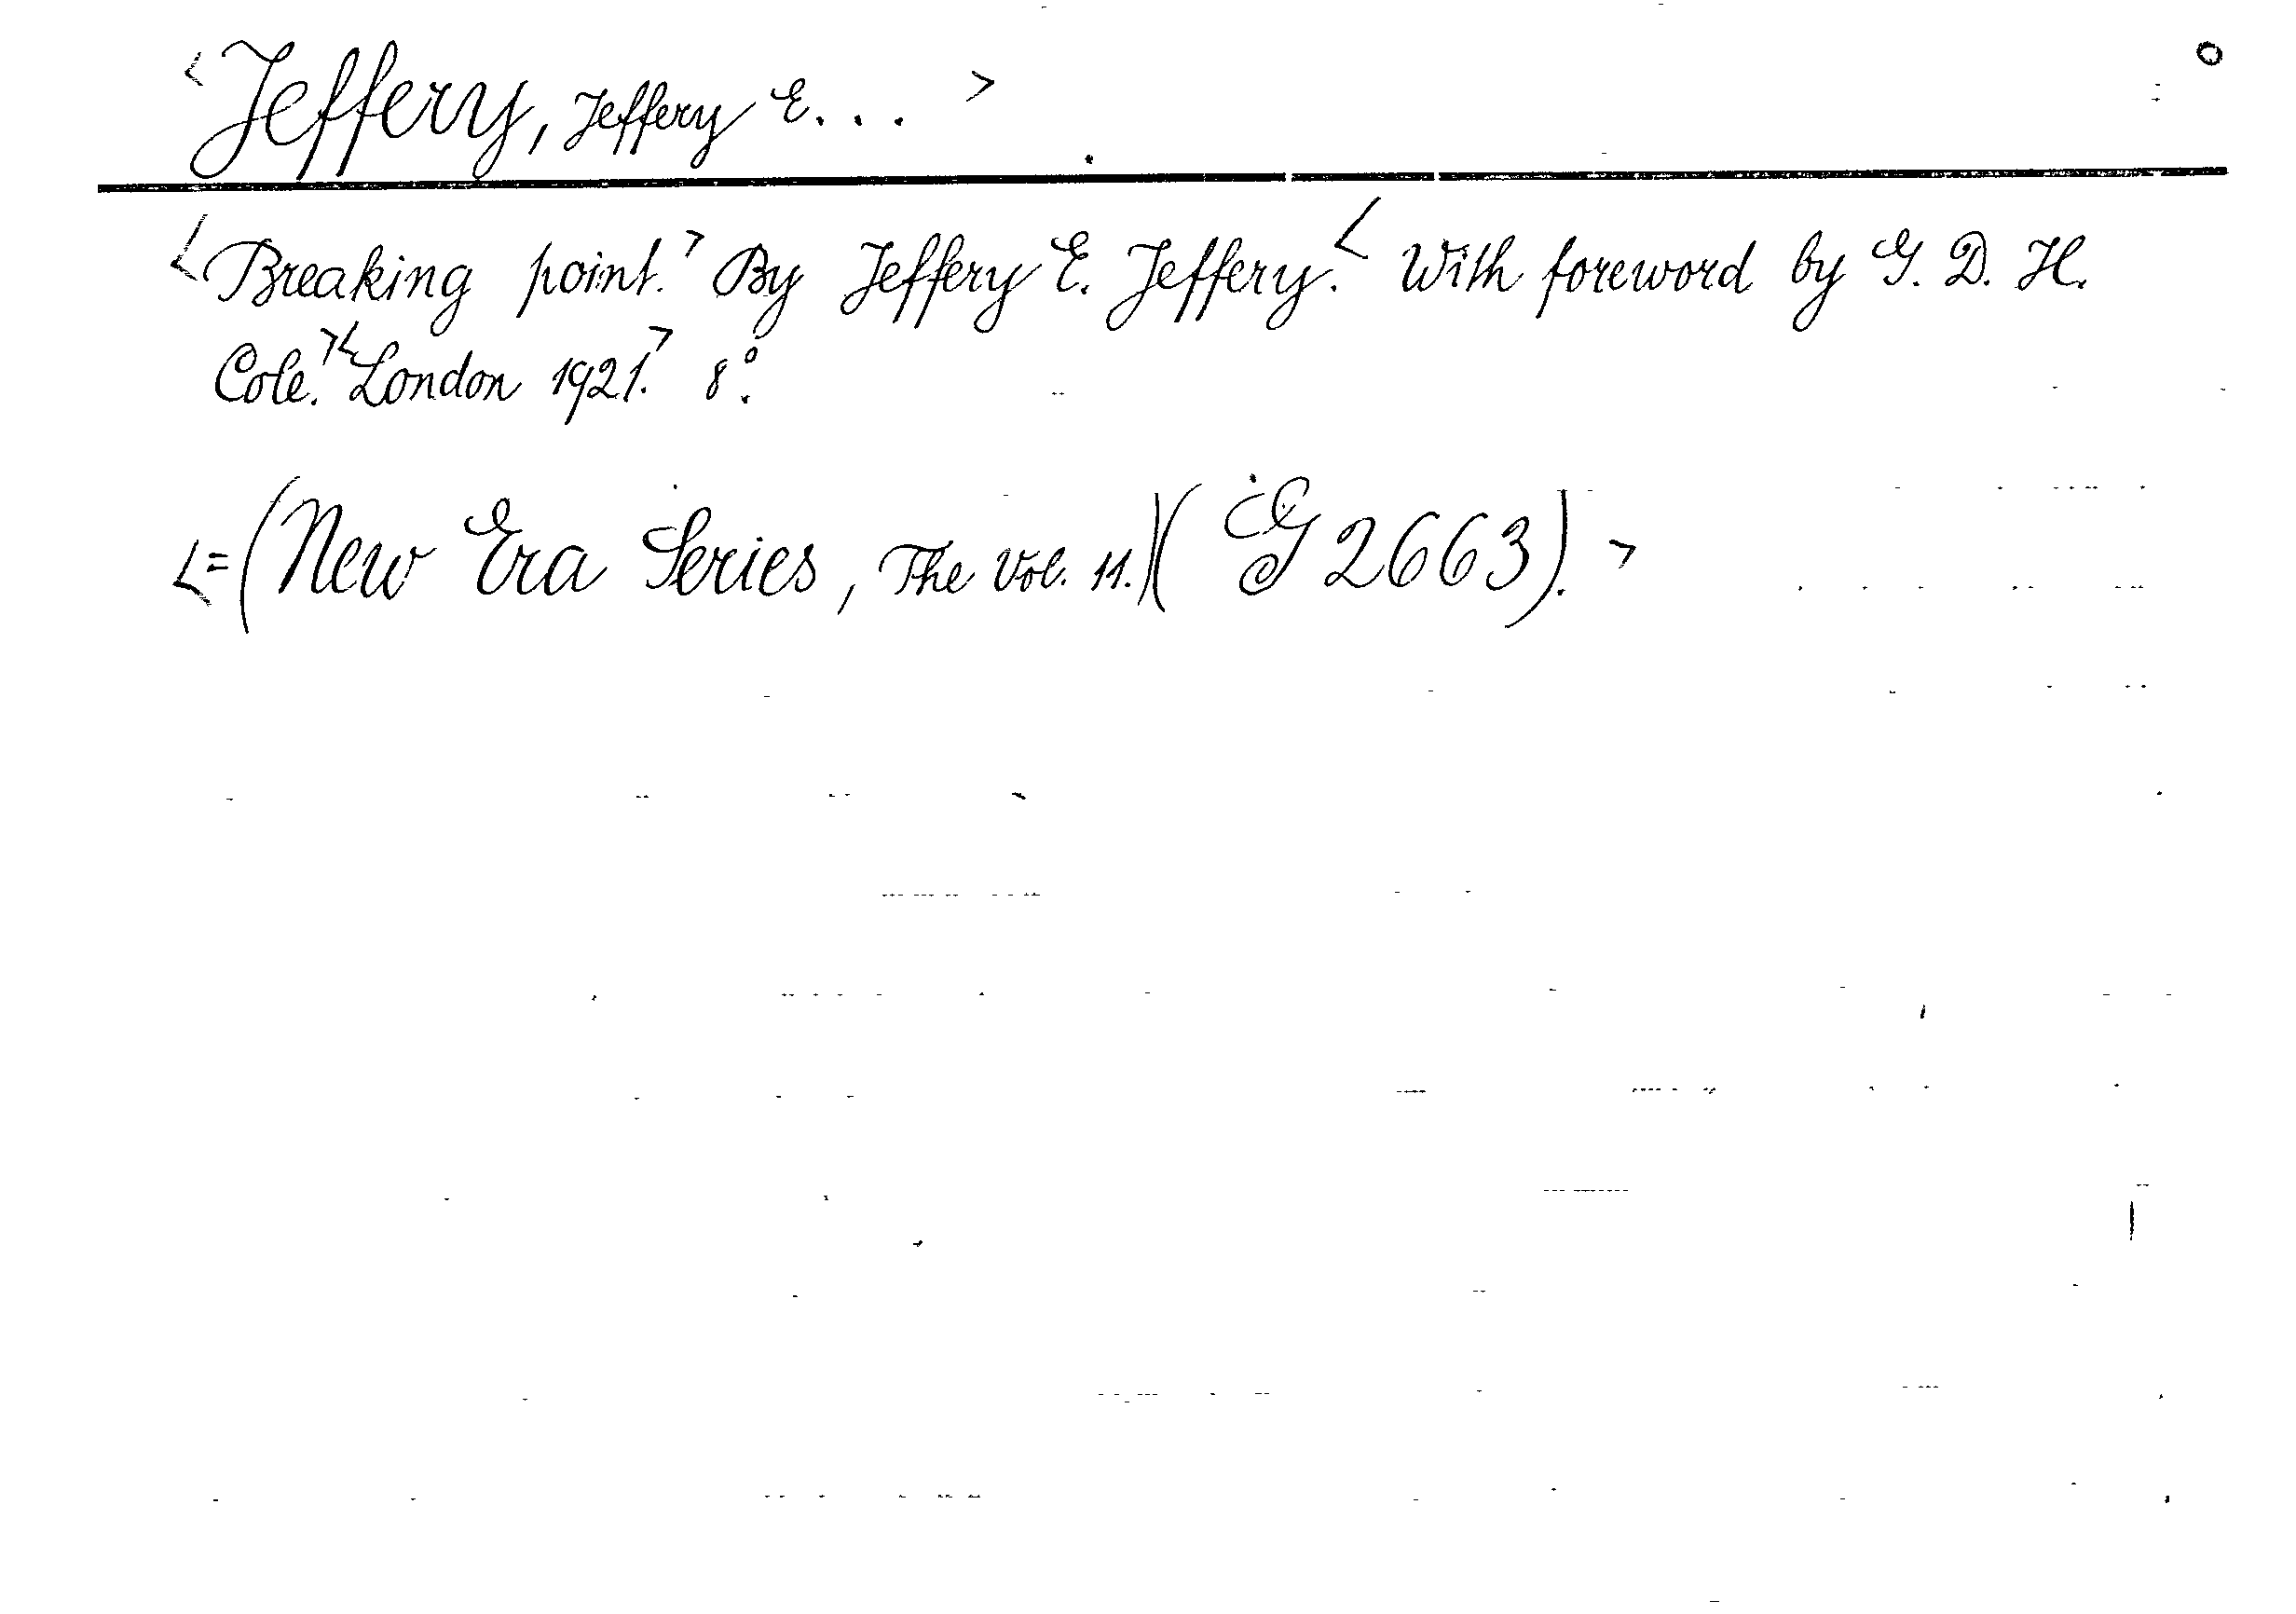 <Jeffery, Jeffery E. . . >
<Breaking point.> By Jeffery E. Jeffery.< With foreword by G. D. H.
Cole.><London 1921.> 8°.
<=(New Era Series, The Vol. 11.)(G 2663).>